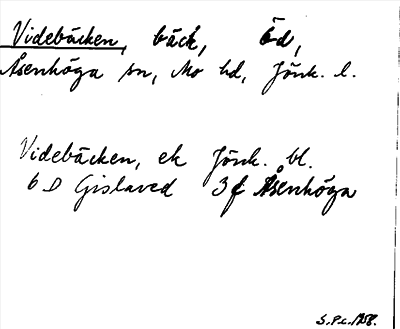 Videbäcken, bäck, Öd,
Åsenhöga sn, Mo hd, Jönk. l.
Videbäcken, ek Jönk. bl.
6 D Gislaved 3 f Åsenhöga
S.P.L. 1958.